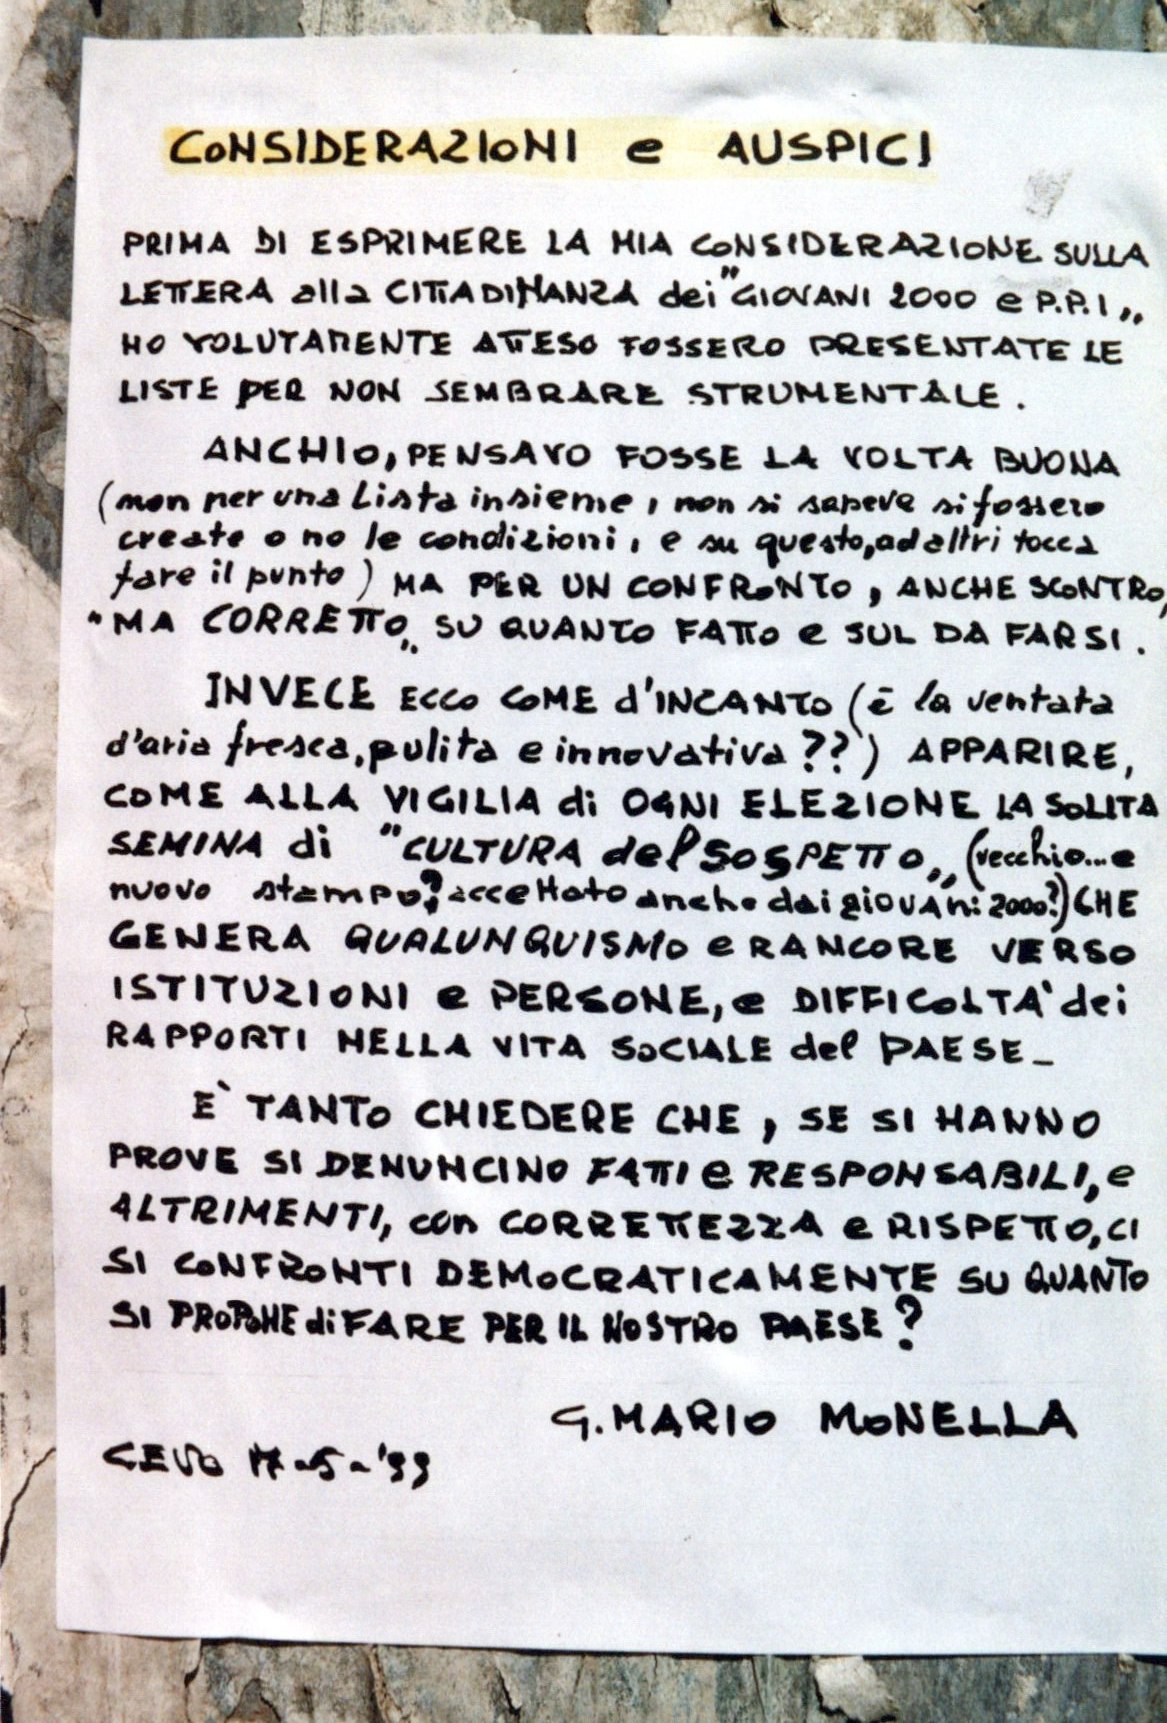 CONSIDERAZIONI e AUSPICI
PRIMA DI ESPRIMERE LA MIA CONSIDERAZIONE SULLA
LETTERA alla CITTADINANZA dei "GIOVANI 2000 e P.P.I„
HO VOLUTAMENTE ATTESO FOSSERO PRESENTATE LE
LISTE PER NON SEMBRARE STRUMENTALE.
ANCHIO, PENSAVO FOSSE LA VOLTA BUONA
(non per una Lista insieme, non si sapeve si fossero
create o no le condizioni, e su questo, ad altri tocca
fare il punto) MA PER UN CONFRONTO, ANCHE SCONTRO,
"MA CORRETTO„ SU QUANTO FATTO e SUL DA FARSI.
INVECE ECCO COME d'INCANTO (è la ventata
d'aria fresca, pulita e innovativa??) APPARIRE,
COME ALLA VIGILIA di OGNI ELEZIONE LA SOLITA
SEMINA di "CULTURA del SOSPETTO„ (vecchio...e
nuovo stampo? accettato anche dai giovani 2000?) CHE
GENERA QUALUNQUISMO e RANCORE VERSO
ISTITUZIONI e PERSONE, e DIFFICOLTA' dei
RAPPORTI NELLA VITA SOCIALE del PAESE_
E` TANTO CHIEDERE CHE, SE SI HANNO
PROVE SI DENUNCINO FATTI e RESPONSABILI, e
ALTRIMENTI, con CORRETTEZZA e RISPETTO, CI
SI CONFRONTI DEMOCRATICAMENTE SU QUANTO
SI PROPONE di FARE PER IL NOSTRO PAESE?
G. MARIO MONELLA
CEVO 17-5-'99